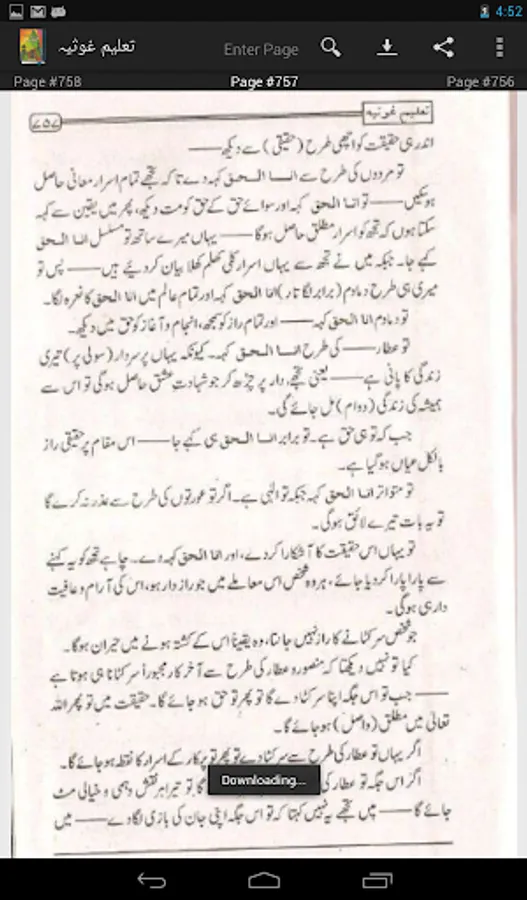 4:52
تعلیم غوثیہ
Enter Page
Page #758
Page #757
Page #756
تعلیم غوثیہ
۷۵۷
اندر ہی حقیقت کو اچھی طرح (حقیقی) سے دیکھ ——
تو مردوں کی طرح سے انا الحق کہہ دے تا کہ تجھے تمام اسرار معانی حاصل
ہو سکیں —— تو انا الحق کہہ اور سوائے حق کے حق کو مت دیکھ، پھر میں یقین سے کہہ
سکتا ہوں کہ تجھ کو اسرار مطلق حاصل ہو گا —— یہاں میرے ساتھ تو مسلسل انا الحق
کہے جا۔ جبکہ میں نے تجھ سے یہاں اسرار کلی کھلم کھلا بیان کر دیئے ہیں —— پس تو
میری ہی طرح دمادم (برابر لگاتار) انا الحق کہہ اور تمام عالم میں انا الحق کا نعرہ لگا۔
تو دمادم انا الحق کہہ —— اور تمام راز کو سمجھ، انجام و آغاز کو حق میں دیکھ۔
تو عطار —— کی طرح انا الحق کہہ۔ کیونکہ یہاں پر سردار (سولی پر) تیری
زندگی کا پانی ہے —— یعنی تجھے، دار پر چڑھ کر جو شہادتِ عشق حاصل ہو گی تو اس سے
ہمیشہ کی زندگی (دوام) مل جائے گی۔
جب کہ تو ہی حق ہے۔ تو برابر انا الحق ہی کہے جا —— اس مقام پر حقیقی راز
بالکل عیاں ہو گیا ہے۔
تو متواتر انا الحق کہہ جبکہ تو الٰہی ہے۔ اگر تو عورتوں کی طرح سے عذر نہ کرے گا
تو یہ بات تیرے لائق ہو گی۔
تو یہاں اس حقیقت کا آشکارا کر دے، اور انا الحق کہہ دے۔ چاہے تجھ کو یہ کہنے
سے پارا پارا کر دیا جائے، ہر وہ شخص اس معاملے میں جو رازدار ہو، اس کی آرام و عافیت
داری ہو گی۔
جو شخص سر کٹانے کا راز نہیں جانتا، وہ یقیناً اس کے کشتہ ہونے میں حیران ہو گا۔
کیا تو نہیں دیکھتا کہ منصور و عطار کی طرح سے آخر کار مجبوراً سر کٹانا ہی ہوتا ہے
—— جب تو اس جگہ اپنا سر کٹا دے گا تو پھر تو حق ہو جائے گا۔ حقیقت میں تو پھر اللہ
تعالیٰ میں مطلق (واصل) ہو جائے گا۔
اگر یہاں تو عطار کی طرح سے سر کٹا دے تو پھر تو پرکار کے اسرار کا نقطہ ہو جائے گا۔
اگر اس جگہ تو عطار کی گا، تو تیرا ہر نقش وہمی و خیالی مٹ
Downloading...
جائے گا —— میں تجھے یہ نہیں کہتا کہ تو اس جگہ اپنی جان کی بازی لگا دے —— میں